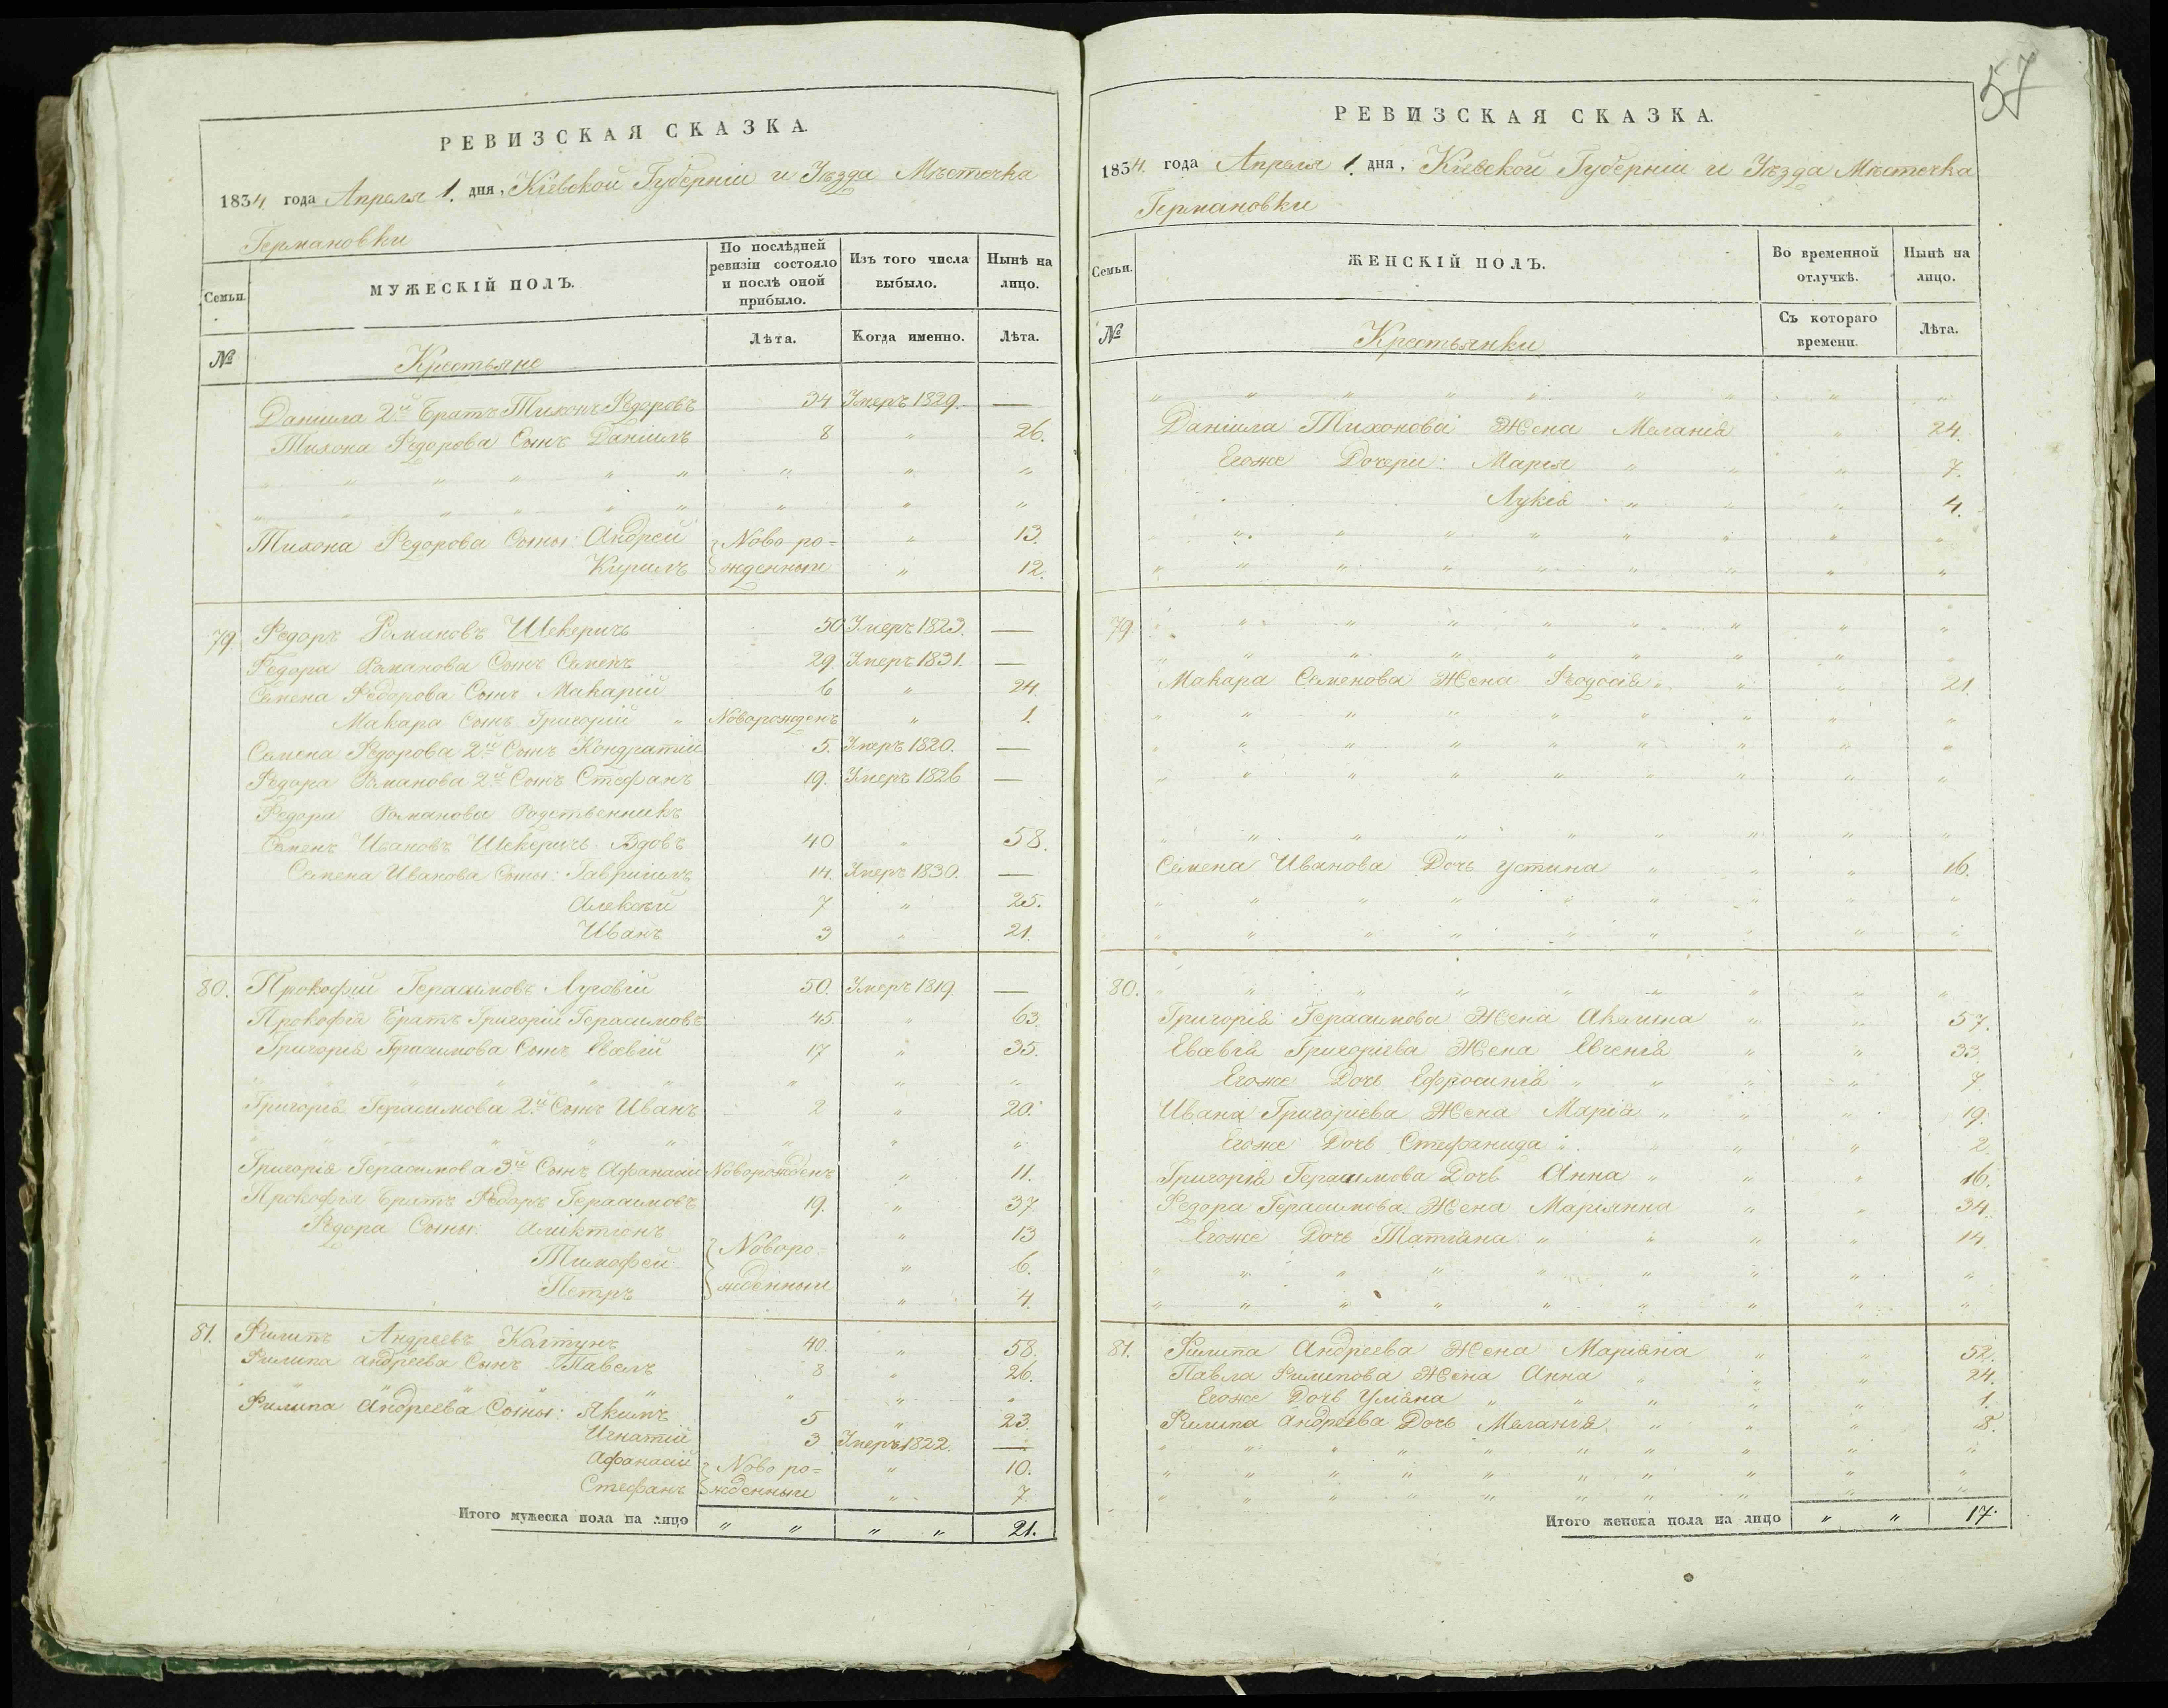 57
РЕВИЗСКАЯ СКАЗКА.
1834. года Апреля 1. дня, Кіевской Губерніи и Уѣзда Мѣстечка
Германовки
Семьи.
МУЖЕСКІЙ ПОЛЪ.
По послѣдней ревизіи состояло и послѣ оной прибыло.
Изъ того числа выбыло.
Нынѣ на лицо.
№
Крестьяне
Лѣта.
Когда именно.
Лѣта.
Даніила 2й Братъ Тихонъ Ѳедоровъ 34 Умеръ 1829. —
Тихона Ѳедорова Сынъ Даніилъ 8 " 26.
" " " " " " " "
" " " " " " " "
Тихона Ѳедорова Сыны: Андрей Ново ро= " 13.
Кирилъ жденныи " 12.
79. Ѳедоръ Романовъ Шекеричь 50 Умеръ 1823. —
Ѳедора Романова Сынъ Семенъ 29. Умеръ 1831. —
Семена Ѳедорова Сынъ Макарій 6 " 24.
Макара Сынъ Григорій " Новорожденъ " 1.
Семена Ѳедорова 2й Сынъ Кондратій 5. Умеръ 1820. —
Ѳедора Романова 2й Сынъ Стефанъ 19. Умеръ 1826 —
Ѳедора Романова Родственникъ
Семенъ Ивановъ Шекеричь Вдовъ 40 " 58.
Семена Иванова Сыны: Гавриилъ 14. Умеръ 1830. —
Алексѣй 7 " 25.
Иванъ 3 " 21.
80. Прокофій Герасимовъ Луговій 50. Умеръ 1819. —
Прокофія Братъ Григорій Герасимовъ 45. " 63.
Григорія Герасимова Сынъ Евсевій 17 " 35.
" " " " " " " "
Григорія Герасимова 2й Сынъ Иванъ 2 " 20.
" " " " " " " "
Григорія Герасимова 3й Сынъ Афанасій Новорожденъ " 11.
Прокофія Братъ Ѳедоръ Герасимовъ 19. " 37.
Ѳедора Сыны: " 13
Тимофей Новоро= " 6.
Петръ жденныи " 4.
81. Филипъ Андреевъ Калтунъ 40. " 58.
Филипа Андреева Сынъ Павелъ 8 " 26.
" " " " " " " "
Филипа Андреева Сыны: Якимъ 5 " 23.
Игнатій 3 Умеръ 1822. —
Афанасій Ново ро= " 10.
Стефанъ жденныи " 7.
Итого мужеска пола на лицо " " " " 21.
РЕВИЗСКАЯ СКАЗКА.
1834. года Апреля 1. дня, Кіевской Губерніи и Уѣзда Мѣстечка
Германовки
Семьи.
ЖЕНСКІЙ ПОЛЪ.
Во временной отлучкѣ.
Нынѣ на лицо.
№
Крестьянки
Съ котораго времени.
Лѣта.
" " " " " " " " "
Даніила Тихонова Жена Меланія " 24.
Егоже Дочери: Марія " " " 7.
Лукія " " " 4.
" " " " " " " "
" " " " " " " " "
79. " " " " " " " " "
" " " " " " " " "
Макара Семенова Жена Ѳеодосія " " " 21.
" " " " " " " " "
" " " " " " " " "
" " " " " " " " "
" " " " " " " " "
Семена Иванова Дочь Устина " " " 16.
" " " " " " " " "
" " " " " " " " "
80. " " " " " " " " "
Григорія Герасимова Жена Акилина " " 57.
Евсевія Григоріева Жена Евгенія " " 33.
Егоже Дочь Ефросинія " " " " 7
Ивана Григоріева Жена Марія " " " 19.
Егоже Дочь Стефанида " " " " 2.
Григорія Герасимова Дочь Анна " " " 16.
Ѳедора Герасимова Жена Маріянна " " 34.
Егоже Дочь Татіана " " " " 14.
" " " " " " " " "
" " " " " " " " "
81. Филипа Андреева Жена Маріана " " 52.
Павла Филипова Жена Анна " " " 24.
Егоже Дочь Уліана " " " " " 1.
Филипа Андреева Дочь Меланія " " " 8.
" " " " " " " " "
" " " " " " " " "
" " " " " " " " "
Итого женска пола на лицо " " 17.